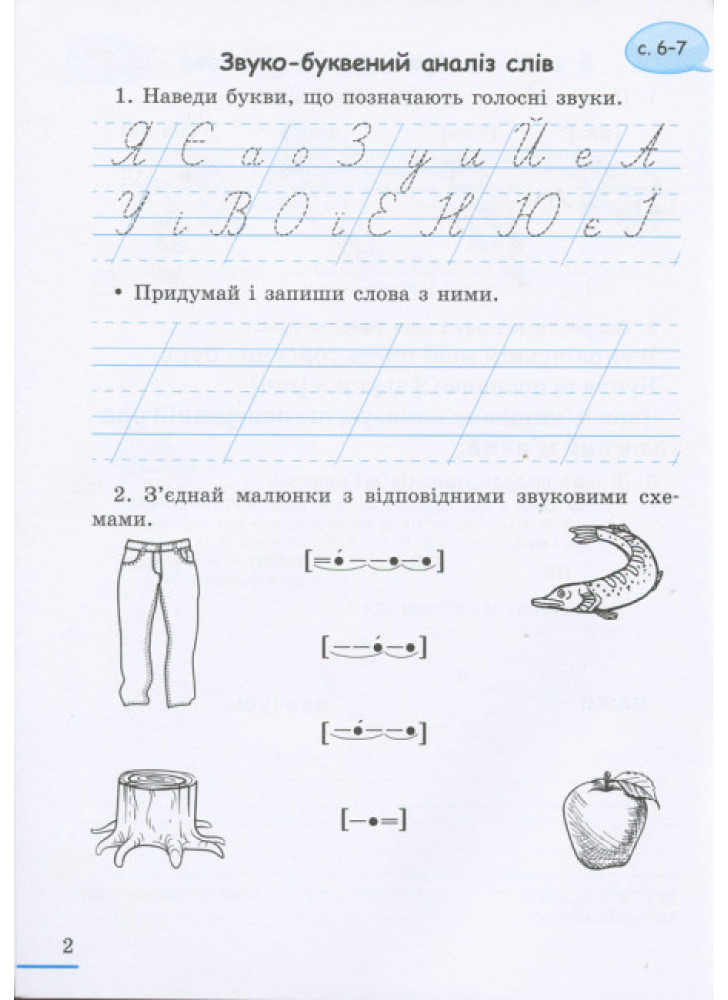 с. 6–7
Звуко-буквений аналіз слів
1. Наведи букви, що позначають голосні звуки.
Я Є а о З у и Й е А
У і В О ї Е Н Ю є Ї
• Придумай і запиши слова з ними.
2. З’єднай малюнки з відповідними звуковими схе-
мами.
[=•́–––•–•]
[––•́–•]
[–•́–•]
[–•=]
2